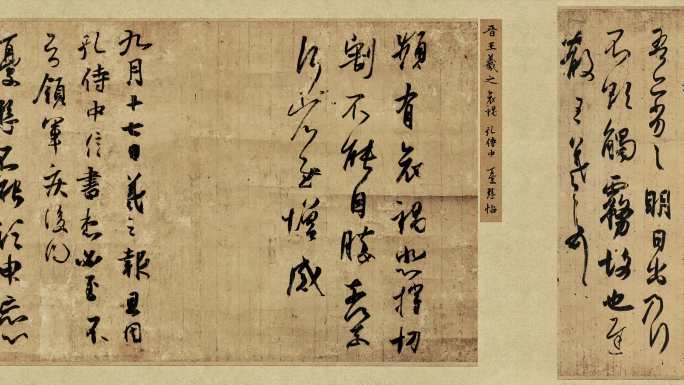 吾亦劣劣明日出乃行
不欲觸霧故也遲
散王羲之頓首
晋王羲之 哀禍 孔侍中 憂懸帖
頻有哀禍悲摧切
割不能自勝奈何奈
何省慰增感
九月十七日羲之報且因
孔侍中信書想必至不
知領軍疾後問
憂懸不能須臾忘心